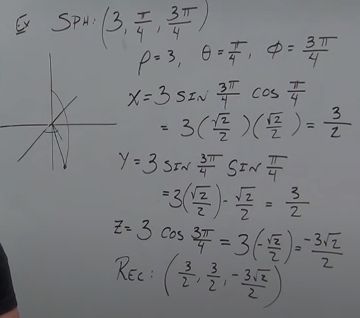 Ex SPH: (3, π/4, 3π/4)
ρ = 3, θ = π/4, φ = 3π/4
X = 3 SIN 3π/4 COS π/4
= 3(√2/2)(√2/2) = 3/2
Y = 3 SIN 3π/4 SIN π/4
= 3(√2/2) - √2/2 = 3/2
Z = 3 COS 3π/4 = 3(-√2/2) = -3√2/2
REC: (3/2, 3/2, -3√2/2)